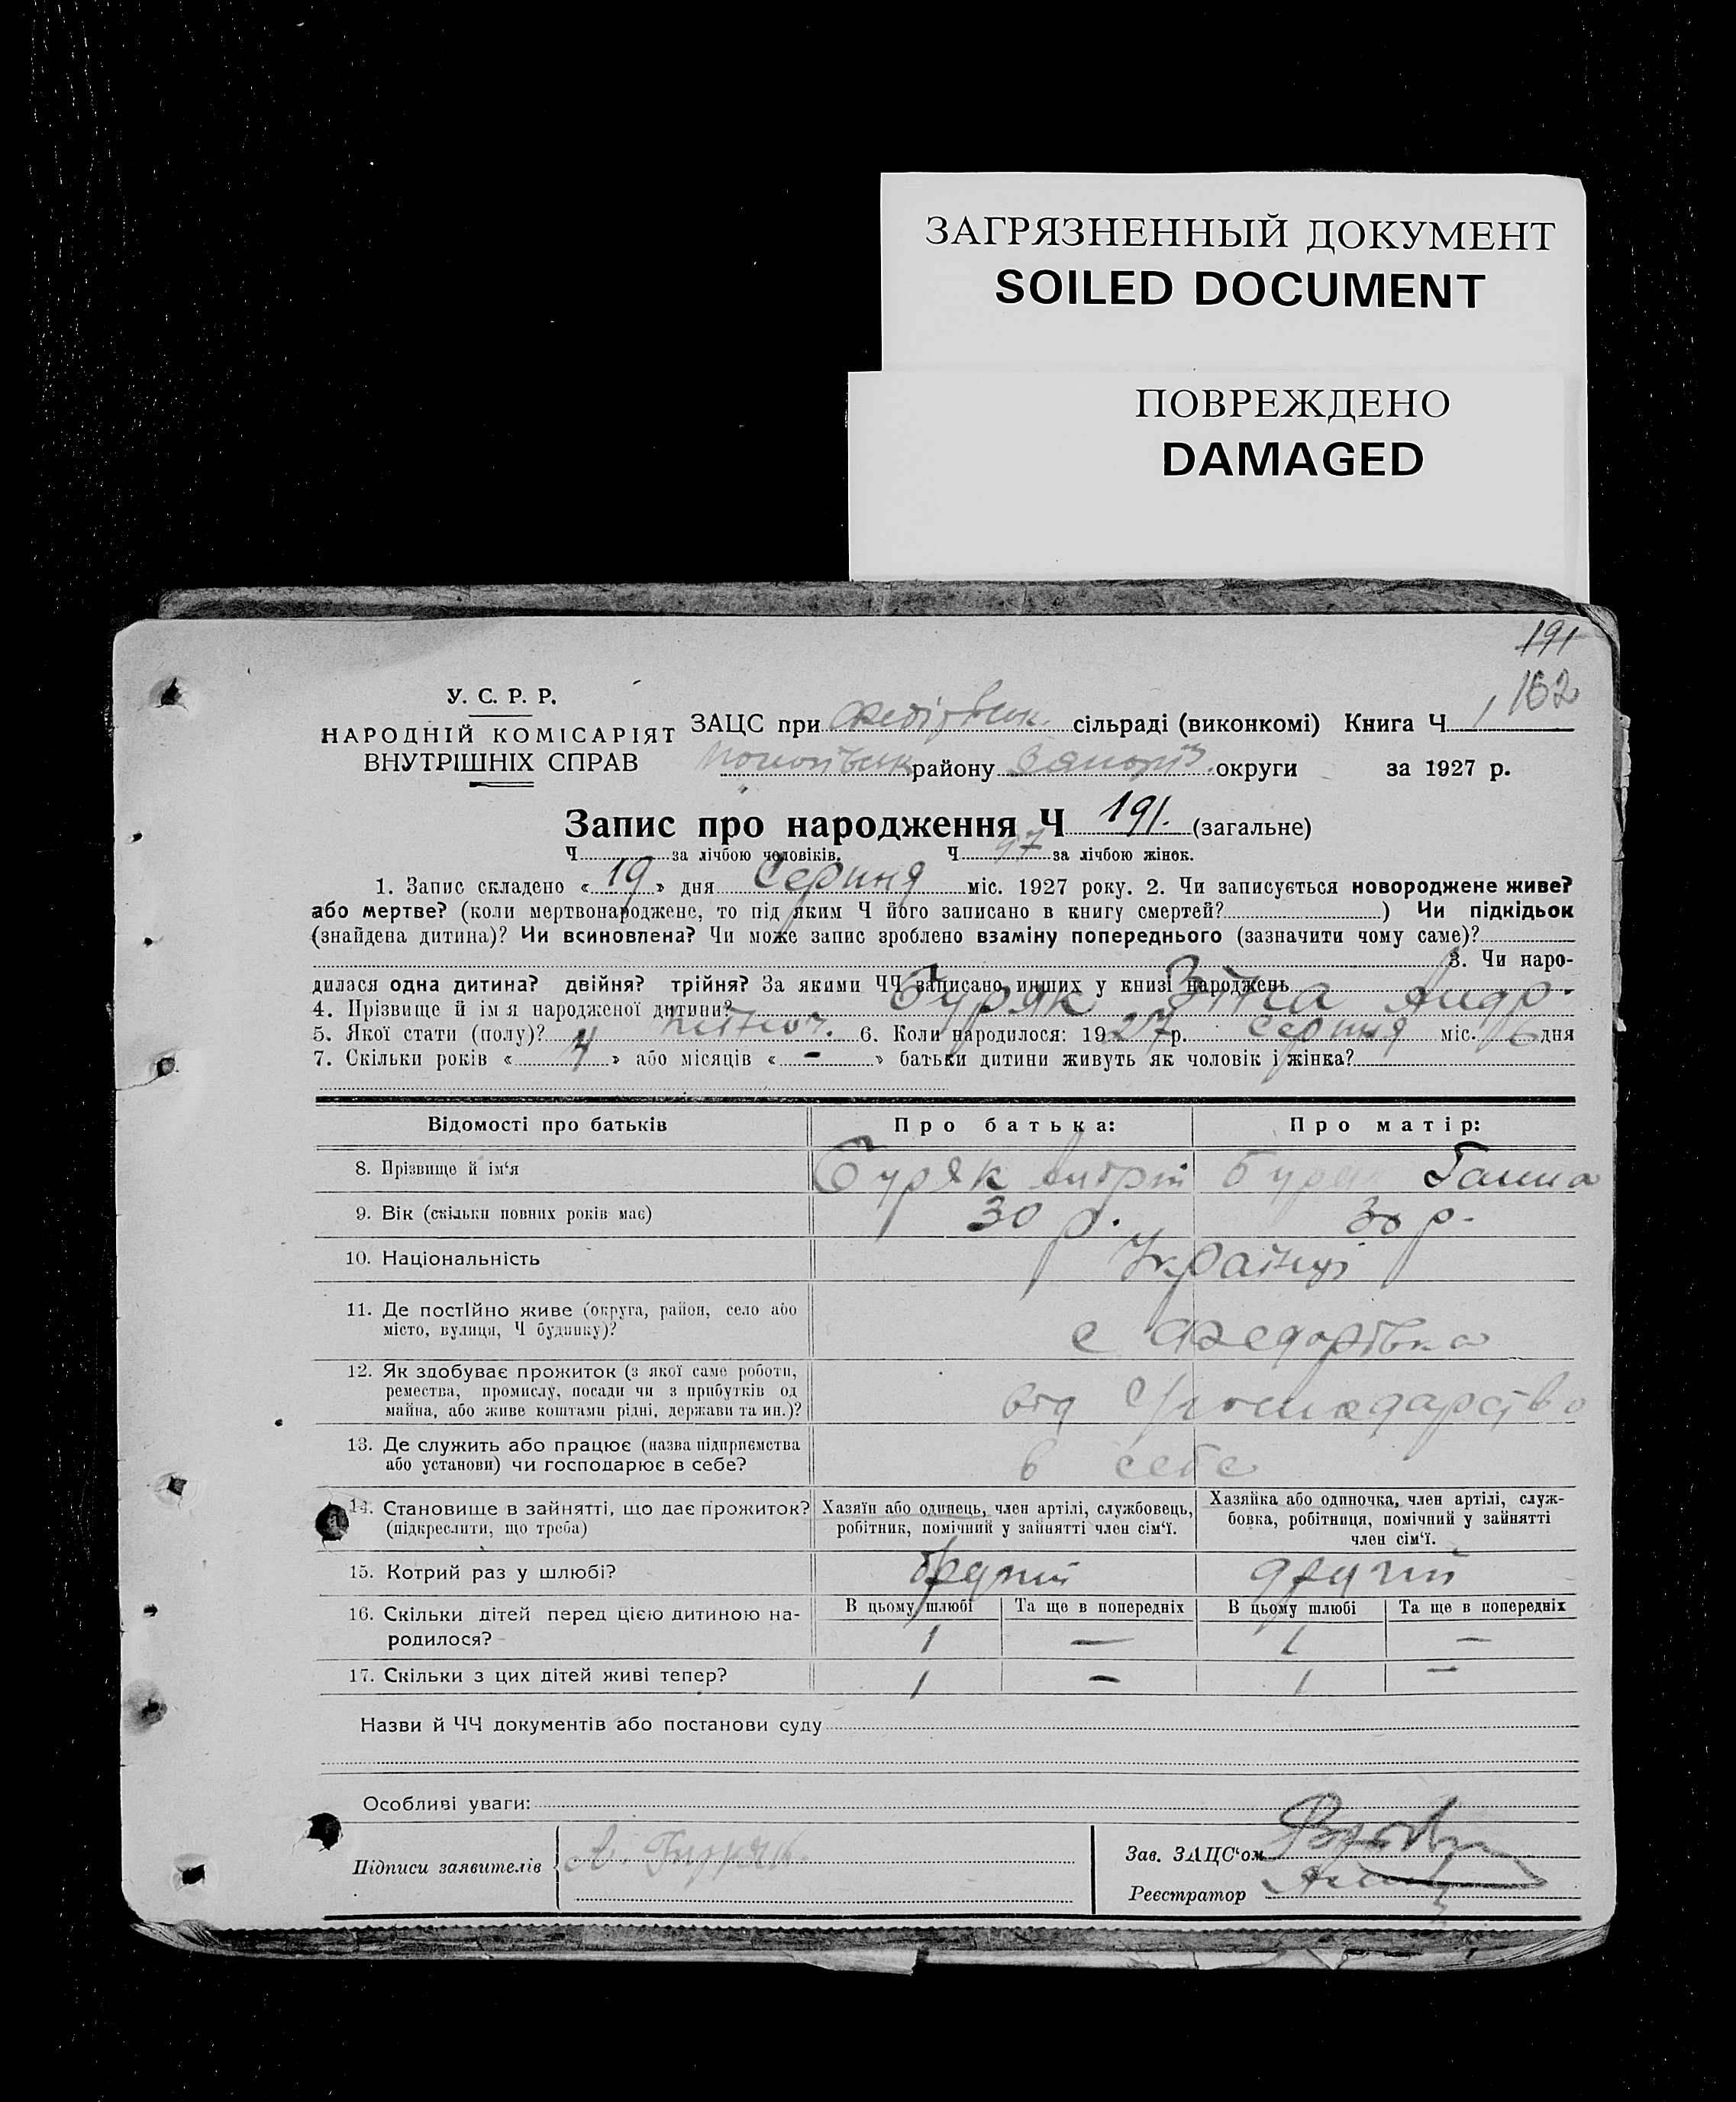 ЗАГРЯЗНЕННЫЙ ДОКУМЕНТ
SOILED DOCUMENT
ПОВРЕЖДЕНО
DAMAGED
191
162
У. С. Р. Р.
НАРОДНІЙ КОМІСАРІЯТ
ВНУТРІШНІХ СПРАВ
ЗАЦС при сільраді (виконкомі) Книга Ч 1
району округи за 1927 р.
Запис про народження Ч 191. (загальне)
Ч за лічбою чоловіків. Ч 97 за лічбою жінок.
1. Запис складено « 19 » дня Серпня міс. 1927 року. 2. Чи записується новороджене живе?
або мертве? (коли мертвонароджене, то під яким Ч його записано в книгу смертей? ) Чи підкідьок
(знайдена дитина)? Чи всиновлена? Чи може запис зроблено взаміну попереднього (зазначити чому саме)?
3. Чи наро-
дилася одна дитина? двійня? трійня? За якими ЧЧ записано инших у книзі народжень
4. Прізвище й ім я народженої дитини? Буряк Зіна Андр.
5. Якої стати (полу)? жіноч. 6. Коли народилося: 1927 р. серпня міс. 6 дня
7. Скільки років « 4 » або місяців « - » батьки дитини живуть як чоловік і жінка?
Відомості про батьків Про батька: Про матір:
8. Прізвище й ім'я Буряк Андрій Буряк Ганна
9. Вік (скільки повних років має) 30 р. 30 р.
10. Національність Українці
11. Де постійно живе (округа, район, село або
місто, вулиця, Ч будинку)? с Федорівка
12. Як здобуває прожиток (з якої саме роботи,
ремества, промислу, посади чи з прибутків од
майна, або живе коштами рідні, держави та ин.)? від
13. Де служить або працює (назва підприємства
або установи) чи господарює в себе? в себе
14. Становище в зайнятті, що дає прожиток?
(підкреслити, що треба)
Хазяїн або одинець, член артілі, службовець,
робітник, помічний у зайнятті член сім'ї.
Хазяйка або одиночка, член артілі, служ-
бовка, робітниця, помічний у зайнятті
член сім'ї.
15. Котрий раз у шлюбі? другий другий
16. Скільки дітей перед цією дитиною на-
родилося?
В цьому шлюбі Та ще в попередніх В цьому шлюбі Та ще в попередніх
1 — 1 —
17. Скільки з цих дітей живі тепер? 1 — 1 —
Назви й ЧЧ документів або постанови суду
Особливі уваги:
Підписи заявителів А. Буряк.
Зав. ЗАЦС'ом
Реєстратор